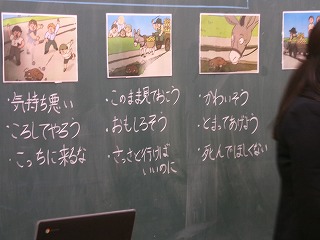 ・気持ち悪い
・ころしてやろう
・こっちに来るな
・このまま見ておこう
・おもしろそう
・さっさと行けば
いいのに
・かわいそう
・とまってあげよう
・死んでほしくない